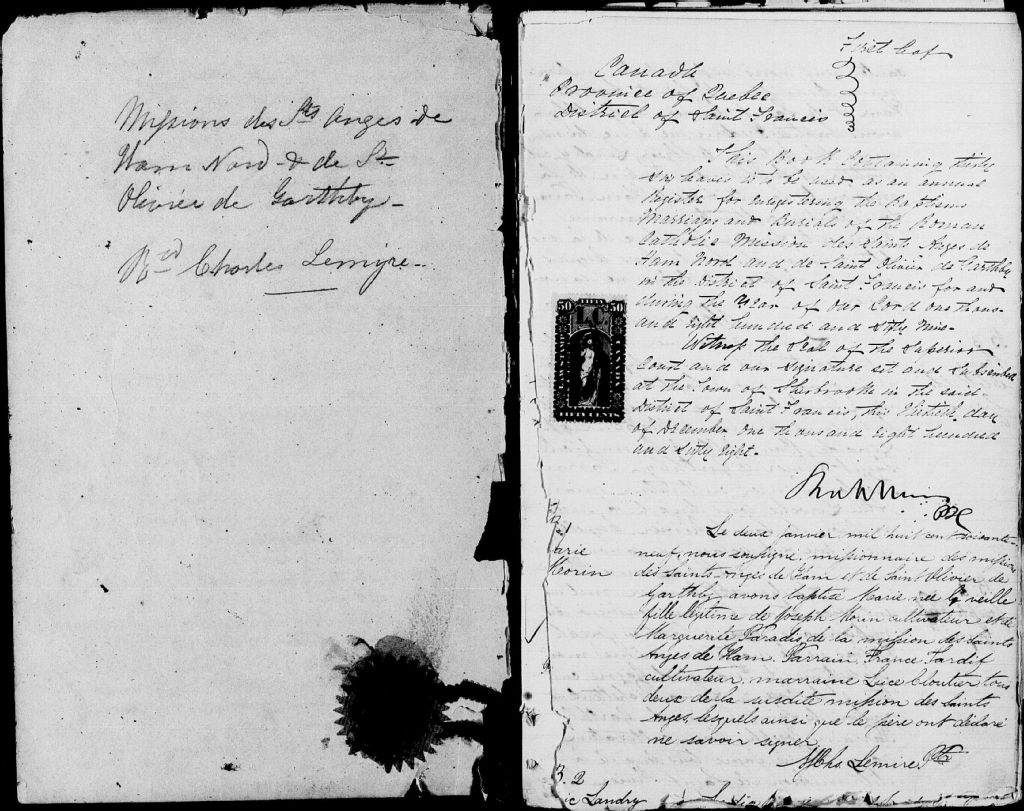 Missions des Sts Anges de
Ham Nord & de St
Olivier de Garthby
Rvd Charles Lemire
First leaf
Canada
Province of Quebec
District of Saint Francis
This Book containing thirty
six leaves is to be used as an annual
Register for enregistering the Baptisms
Marriages and Burials of the Roman
Catholic Mission des Saints Anges de
Ham Nord and de Saint Olivier de Garthby
in the District of Saint Francis for and
during the Year of our Lord one thous-
and eight hundred and sixty nine-
Witness the Seal of the Superior
Court and our signature set and subscribed
at the Town of Sherbrooke in the said
District of Saint Francis, this thirtieth day
of December one thousand eight hundred
and sixty eight-
50 FIFTY 50
L C
FIFTY CENTS
arie
Morin
Le deux janvier mil huit cent soixante-
neuf, nous soussigné, missionnaire des missions
des Saints Anges de Ham et de Saint Olivier de
Garthby, avons baptisé Marie née la veille
fille légitime de Joseph Morin cultivateur et de
Marguerite Paradis, de la mission des saints
Anges de Ham. Parrain, France Tardif
cultivateur, marraine Cloutier tous
deux de la susdite mission des Saints
Anges, lesquels ainsi que le père ont déclaré
ne savoir signer.
Chs Lemire Ptre
B. 2
Landry